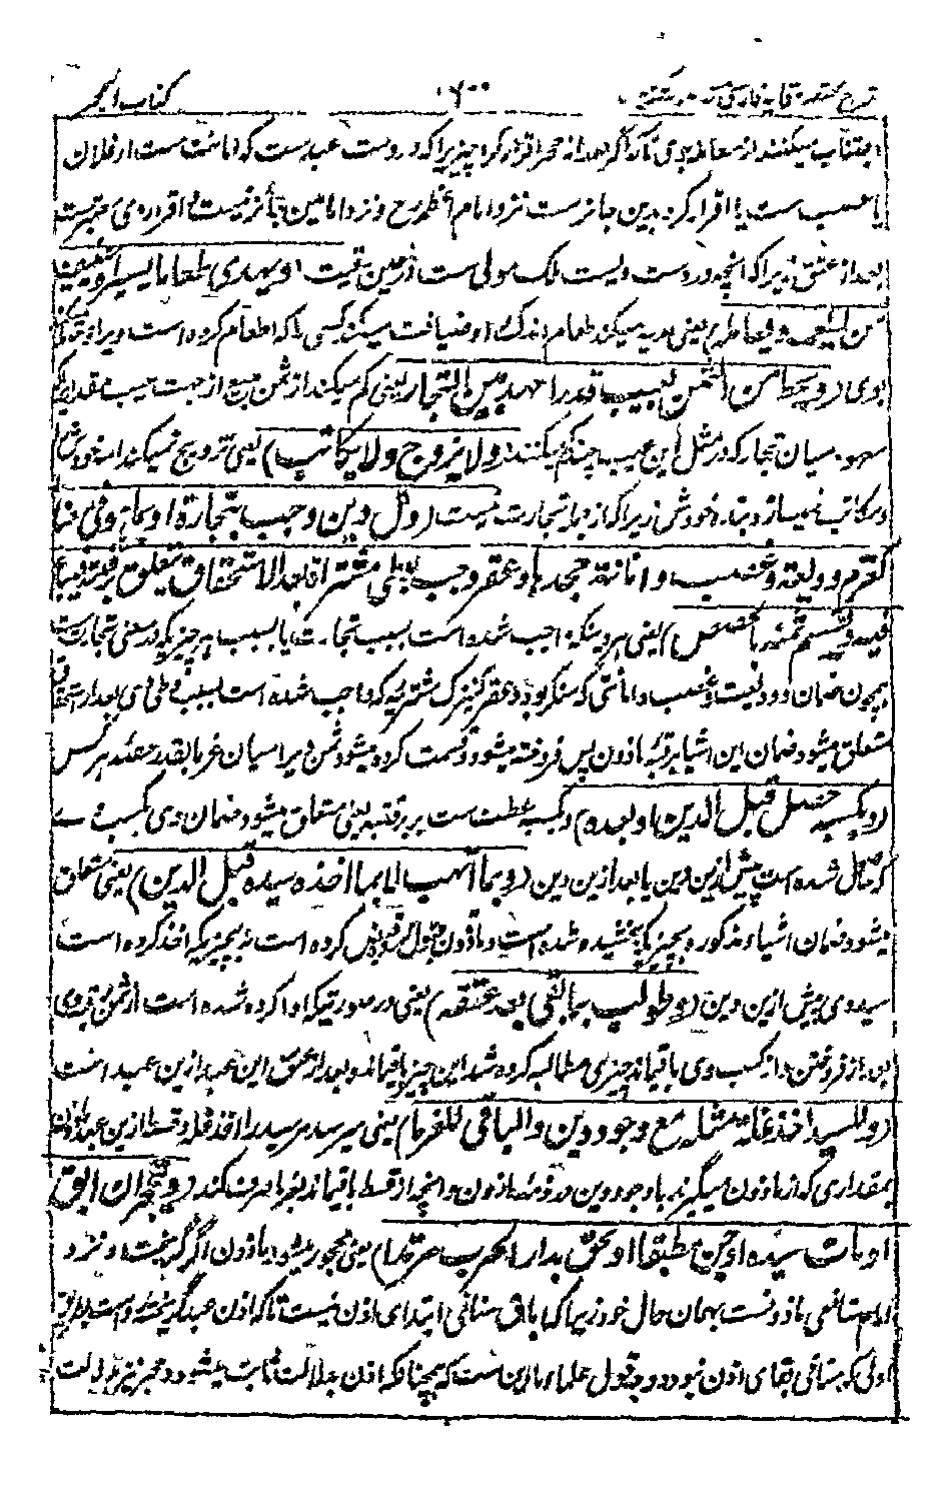 شرح مختصر وقایه فارسی ۶۰۰ کتاب الحجر
اجتناب میکنند از معامله وی تا که اگر بعد از حجر اقرار کرد چیزیرا که در دست عبد ست که امانت ست از فلان
یا غصب ست یا اقرار کرد بدین جائز ست نزد امام اعظم رح و نزد امامین جائز نیست اقرار وی
بعد از عتق زیرا که آنچه در دست ویست ملک مولی ست از عین رقیت (و یهدی طعاما یسیرا و یضیف
من یطعمه و یعامله) یعنی هدیه میکند طعام اندک او ضیافت میکند کسی را که اطعام کرده است ویرا و
بوی (و یحط من الثمن بعیب قدرا عهد بین التجار) یعنی کم میکند از ثمن مبیع از جهت عیب مقداریکه
معهود میان تجار که در مثل این عیب چند کم میکنند (ولا یزوج ولا یکاتب) یعنی تزویج نمیکند
و مکاتب نمیسازد بنده خودش زیرا که از تجارت نیست (و کل دین وجب بتجارة او بما هو فی معناها
کغرم و ودیعة و غصب و امانة جحدها و عقر وجب بوطی مشتراة بعد الاستحقاق یتعلق برقبته یباع
فیه و یقسم ثمنه بالحصص) یعنی هر دینکه واجب شده است بسبب تجارت یا بسبب هر چیزیکه در معنی تجارت ست
همچون ضمان و ودیعت و غصب و امانتی که منکر بود و عقر کنیزک مشتریه که واجب شده است بسبب وطی وی بعد از استحقاق
متعلق میشود ضمان این اشیا برقبه ماذون پس فروخته میشود و قسمت کرده میشود ثمن ویرا میان غرما بقدر حصه هر کس
(و بکسبه حصل قبل الدین او بعده) و بکسبه عطف ست بر برقبته یعنی متعلق میشود ضمان وی بکسب وے
که حاصل شده است پیش ازین دین یا بعد ازین دین (و بما اتهب لا بما اخذه سیده قبل الدین) یعنی متعلق
میشود ضمان اشیاء مذکوره بچیزیکه بخشیده شده است و ماذون قبول کرده است نه بچیزیکه اخذ کرده است
سید وی پیش ازین دین (و طولب بما بقی بعد عتقه) یعنی در صورتیکه ادا کرده شده است از ثمن رقبه وی
بعد از فروختن و از کسب وی باقیماند چیزی مطالبه کرده شد این چیز باقیمانده بعد از عتق این عبد ازین عبد است
(و للسید اخذ غلة مثله مع وجود دین والباقی للغرماء) یعنی میرسد مر سید را اخذ غله و قسط ازین عبد ماذون
بمقداری که از ماذون میگیرند با وجود دین در ذمه ماذون و آنچه از قسط باقیماند بغرما صرف کند (و یحجر ان ابق
او مات سیده او جن مطبقا او لحق بدار الحرب مرتدا) یعنی محجور میشود ماذون اگر گریخت او نزد
امام شافعی ماذون ست بهمان حال خود زیرا که اباق منافی ابتدای اذن نیست تا که اذن عبد گریخته درست
اولی که منافی بقای اذن نبود و قول علماء ما این ست که همچنانکه اذن بدلالت ثابت میشود و حجر نیز بدلالت